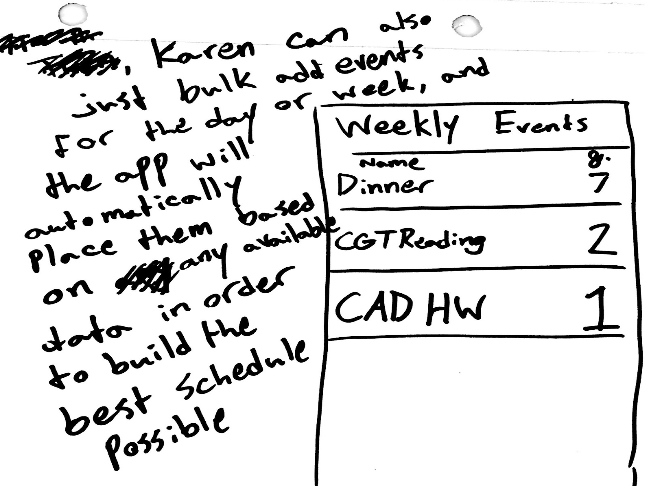 , Karen can also
just bulk add events
for the day or week, and
the app will
automatically
place them based
on any available
data in order
to build the
best schedule
possible
Weekly Events
Name #.
Dinner 7
CGT Reading 2
CAD HW 1